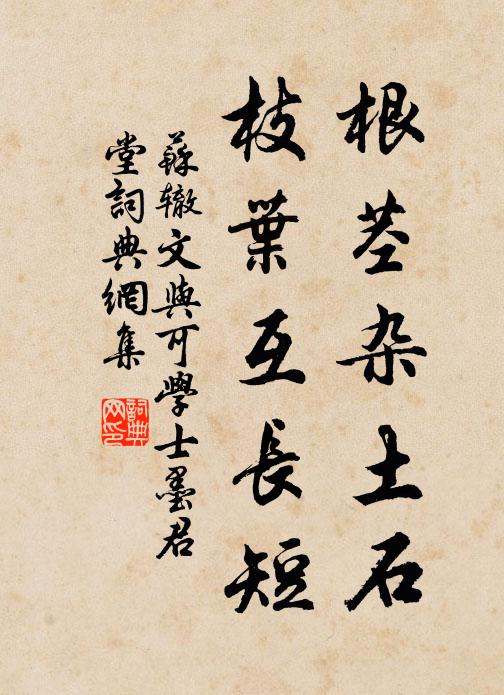 根茎杂土石
枝葉互長短
蘇辙文與可學士墨君
堂詞典網集
詞典
网印